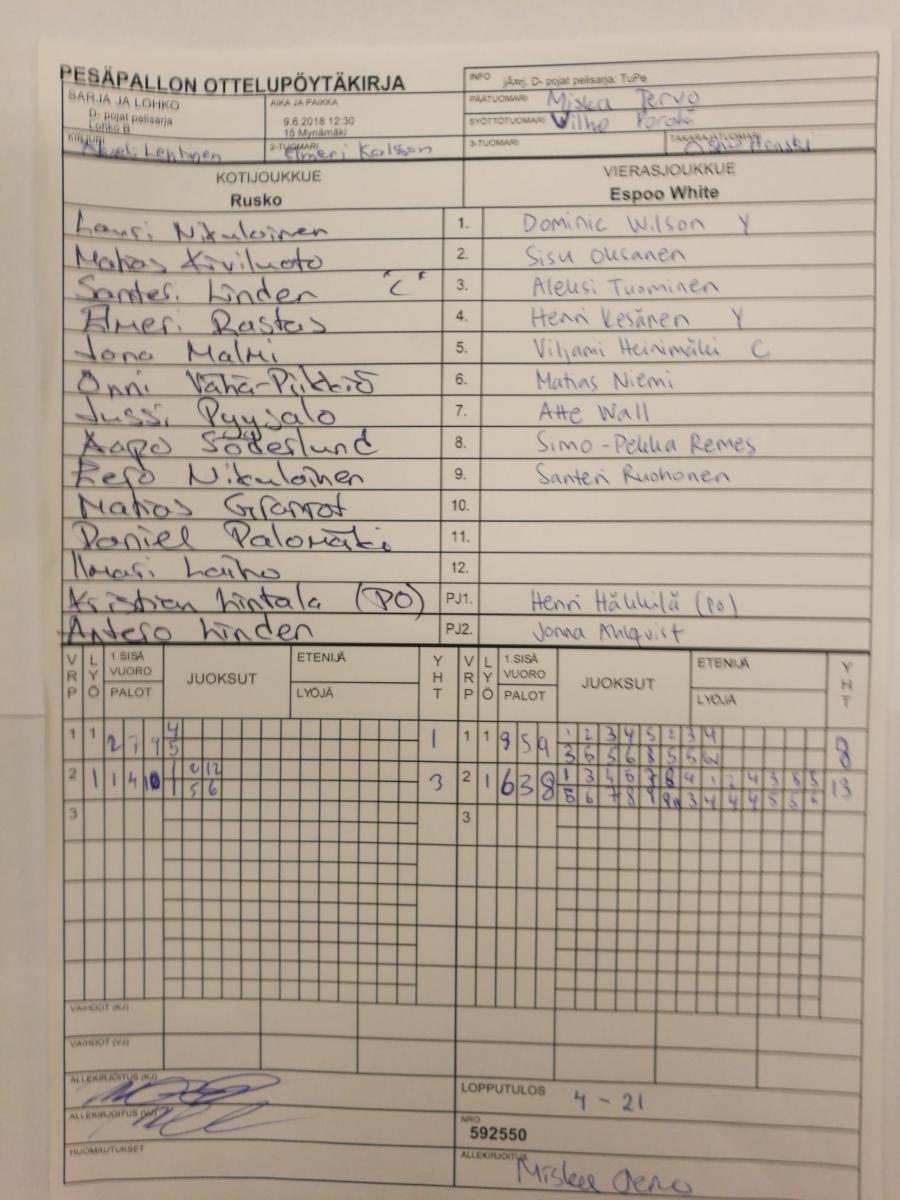 PESÄPALLON OTTELUPÖYTÄKIRJA
INFO jÄsrj, D- pojat pelisarja: TuPe
SARJA JA LOHKO
D- pojat pelisarja
Lohko B
AIKA JA PAIKKA
9.6.2018 12:30
15 Mynämäki
PÄÄTUOMARI Miska Tervo
SYÖTTÖTUOMARI Vilho
KIRJURI Lehtinen
2-TUOMARI Elmeri Karlsson
3-TUOMARI
TAKARAJATUOMARI
KOTIJOUKKUE
Rusko
VIERASJOUKKUE
Espoo White
Lauri Nikulainen 1. Dominic Wilson Y
Matias Kiviluoto 2. Sisu Oksanen
Santeri Linden "C" 3. Aleksi Tuominen
Elmeri Rastas 4. Henri Kesänen Y
Jona Malmi 5. Viljami Heinimäki C
Onni Vähä-Piikkiö 6. Matias Niemi
Jussi Pyysalo 7. Atte Wall
Aapo Söderlund 8. Simo-Pekka Remes
Eero Nikulainen 9. Santeri Ruohonen
Matias Granrot 10.
Daniel Palomäki 11.
Ilmari Laiho 12.
Kristian Lintala (PO) PJ1. Henri Häkkilä (PO)
Antero Linden PJ2. Jonna Ahlqvist
VRP LYÖ 1.SISÄ VUORO PALOT JUOKSUT ETENIJÄ LYÖJÄ YHT VRP LYÖ 1.SISÄ VUORO PALOT JUOKSUT ETENIJÄ LYÖJÄ YHT
1 1 2 7 9 4 1 1 1 9 5 9 1 2 3 4 5 2 3 4 8
5 3 5 5 6 8 5 5
2 1 1 4 10 1 2 12 3 2 1 6 3 8 1 3 4 5 7 8 9 1 2 4 3 5 5 13
1 5 6 5 6 7 8 9 3 4 4 4 5 5 6
3 3
VAIHDOT (KJ)
VAIHDOT (VJ)
ALLEKIRJOITUS (KJ)
ALLEKIRJOITUS (VJ)
HUOMAUTUKSET
LOPPUTULOS 4 - 21
NRO
592550
ALLEKIRJOITUS
Miska Tervo